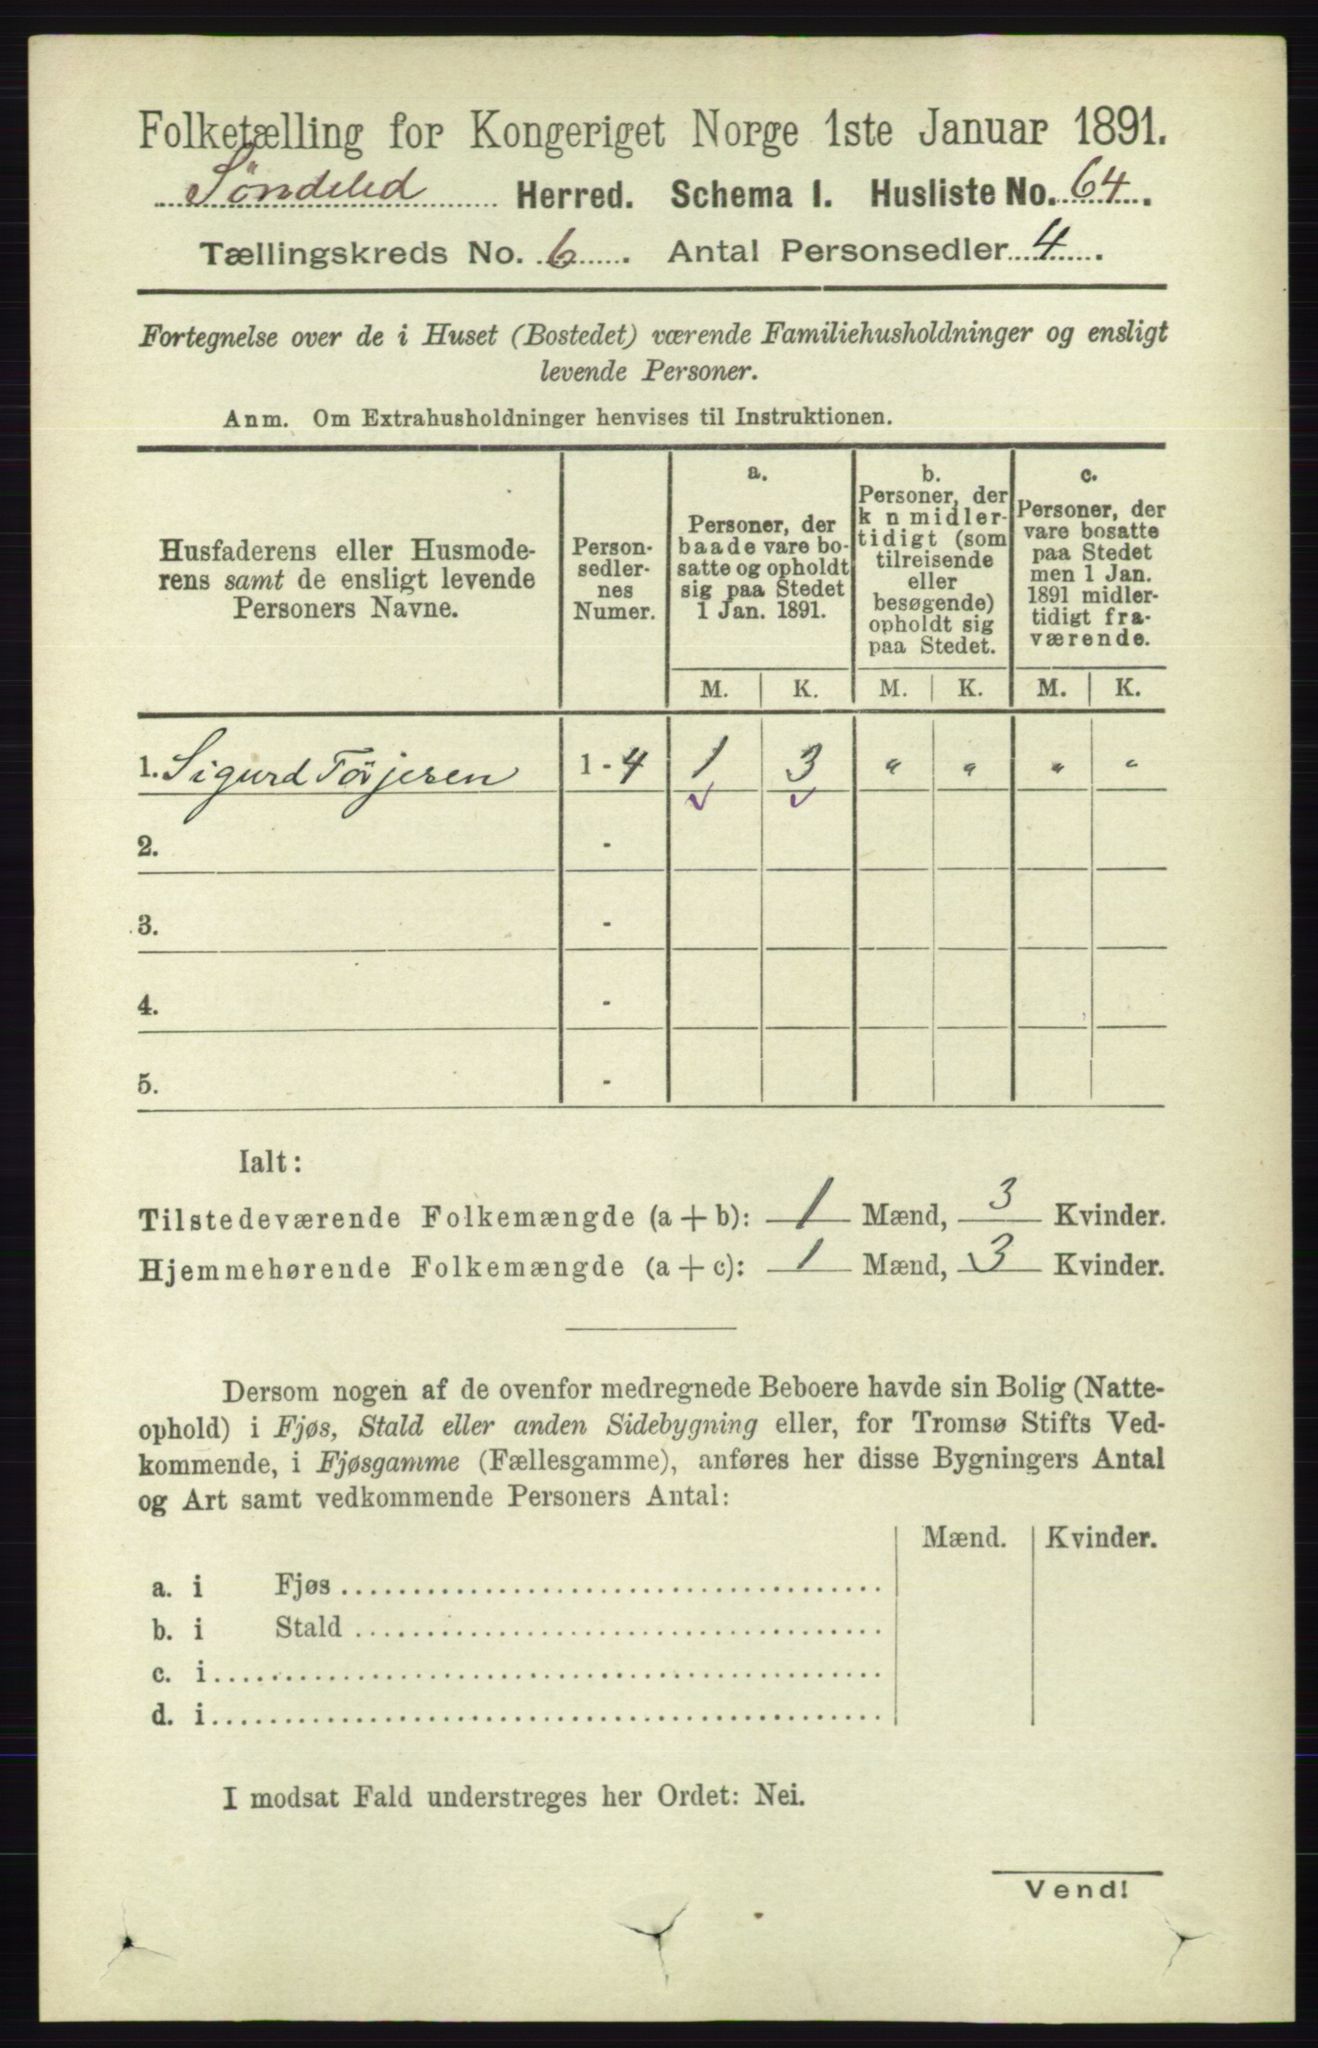 Folketælling for Kongeriget Norge 1ste Januar 1891.
Søndeled Herred. Schema I. Husliste No. 64.
Tællingskreds No. 6. Antal Personsedler 4.
Fortegnelse over de i Huset (Bostedet) værende Familiehusholdninger og ensligt
levende Personer.
Anm. Om Extrahusholdninger henvises til Instruktionen.
Husfaderens eller Husmode-
rens samt de ensligt levende
Personers Navne.
Person-
sedler-
nes
Numer.
a.
Personer, der
baade vare bo-
satte og opholdt
sig paa Stedet
1 Jan. 1891.
b.
Personer, der
k n midler-
tidigt (som
tilreisende
eller
besøgende)
opholdt sig
paa Stedet.
c.
Personer, der
vare bosatte
paa Stedet
men 1 Jan.
1891 midler-
tidigt fra-
værende.
M. K. M. K. M. K.
1. Sigurd Törjesen 1-4 1 3 " " " "
2. -
3. -
4. -
5. -
Ialt:
Tilstedeværende Folkemængde (a + b): 1 Mænd, 3 Kvinder.
Hjemmehørende Folkemængde (a + c): 1 Mænd, 3 Kvinder.
Dersom nogen af de ovenfor medregnede Beboere havde sin Bolig (Natte-
ophold) i Fjøs, Stald eller anden Sidebygning eller, for Tromsø Stifts Ved-
kommende, i Fjøsgamme (Fællesgamme), anføres her disse Bygningers Antal
og Art samt vedkommende Personers Antal:
Mænd. Kvinder.
a. i Fjøs
b. i Stald
c. i
d. i
I modsat Fald understreges her Ordet: Nei.
Vend!